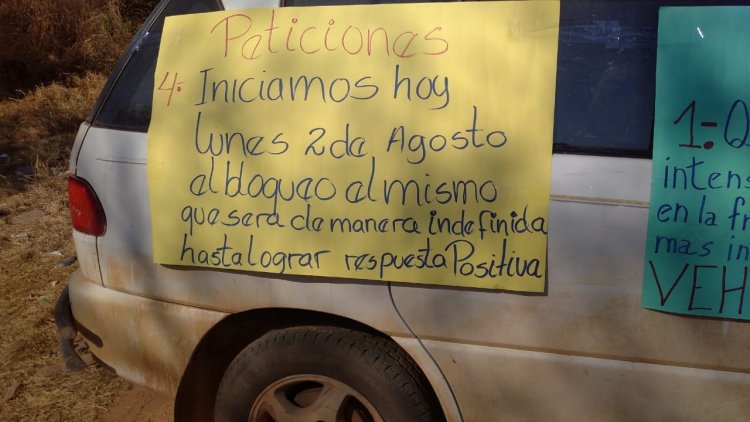 Peticiones
4: Iniciamos hoy
lunes 2 de Agosto
el bloqueo el mismo
que sera de manera indefinida
hasta lograr respuesta Positiva
1:
en la
mas